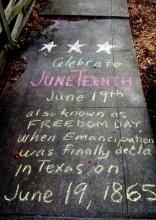 Celebrate
JUNETEENTH
June 19th
also known as
FREEDOM DAY
when Emancipation
was finally decla
in Texas on
June 19, 1865